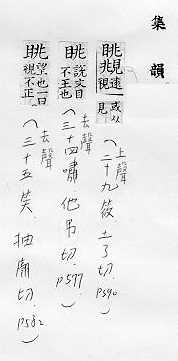 集韻
眺覜遠視或从見(上聲二十九筱.土了切.p390)
眺說文目不正也(去聲三十四嘯.他吊切.p577)
眺望也一曰視不正(去聲三十五笑.抽廟切.p582)